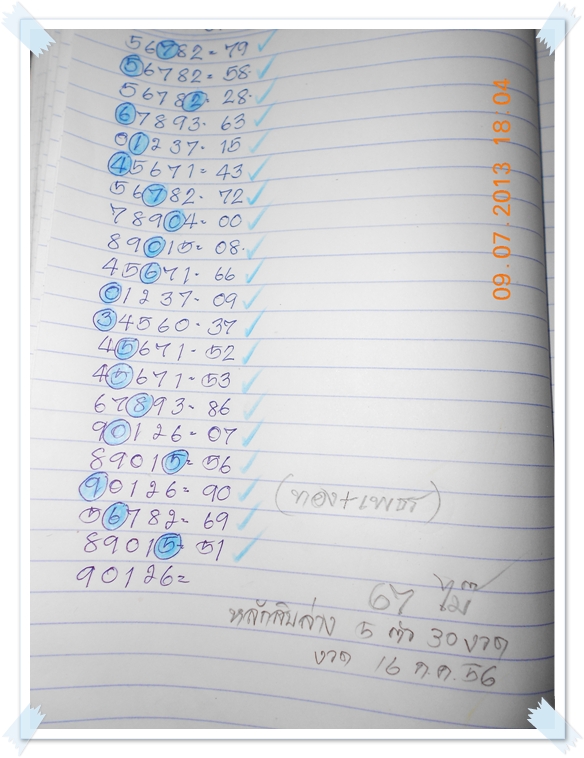 56782 = 79
56782 = 58
56782 · 28
67893 · 63
01237 · 15
45671 = 43
56782 · 72
78904 = 00
89015 = 08
45671 · 66
01237 · 09
34560 · 37
45671 · 52
45671 = 53
67893 · 86
90126 = 07
89015 = 56
90126 = 90
56782 = 69
89015 = 51
90126 =
(ทอง+เพชร)
67 ไม้
หลักสิบล่าง 5 ตัว 30 งวด
งวด 16 ก.ค. 56
09.07.2013 18:04